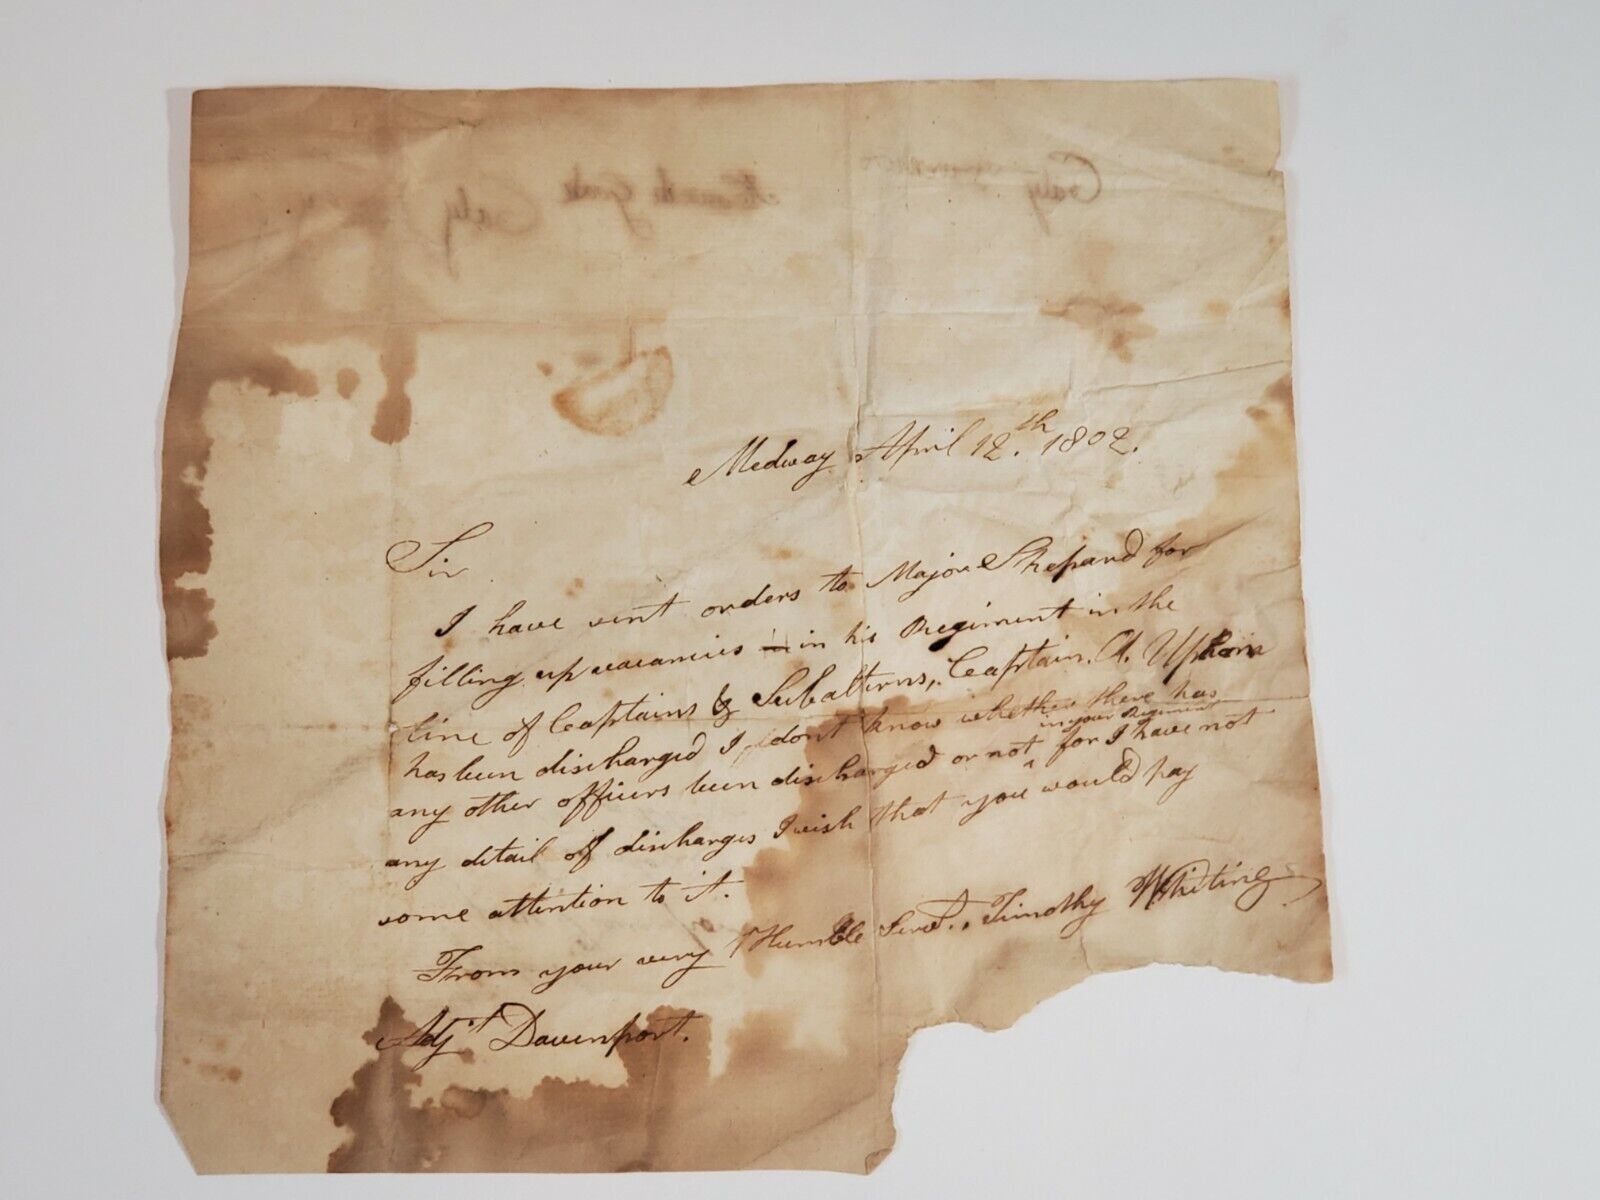 Medway April 12.th 1802.
Sir
I have sent orders to Major Shepard for
filling up vacancies in his Regiment in the
line of Captains & Subalterns, Captain A. Upham
has been discharged I dont know whether there has
in your Regiment
any other officers been discharged or not ^ for I have not
any detail of discharges I wish that you would pay
some attention to it.
From your very Humble Servt., Timothy Whiting
Adjt Davenport.